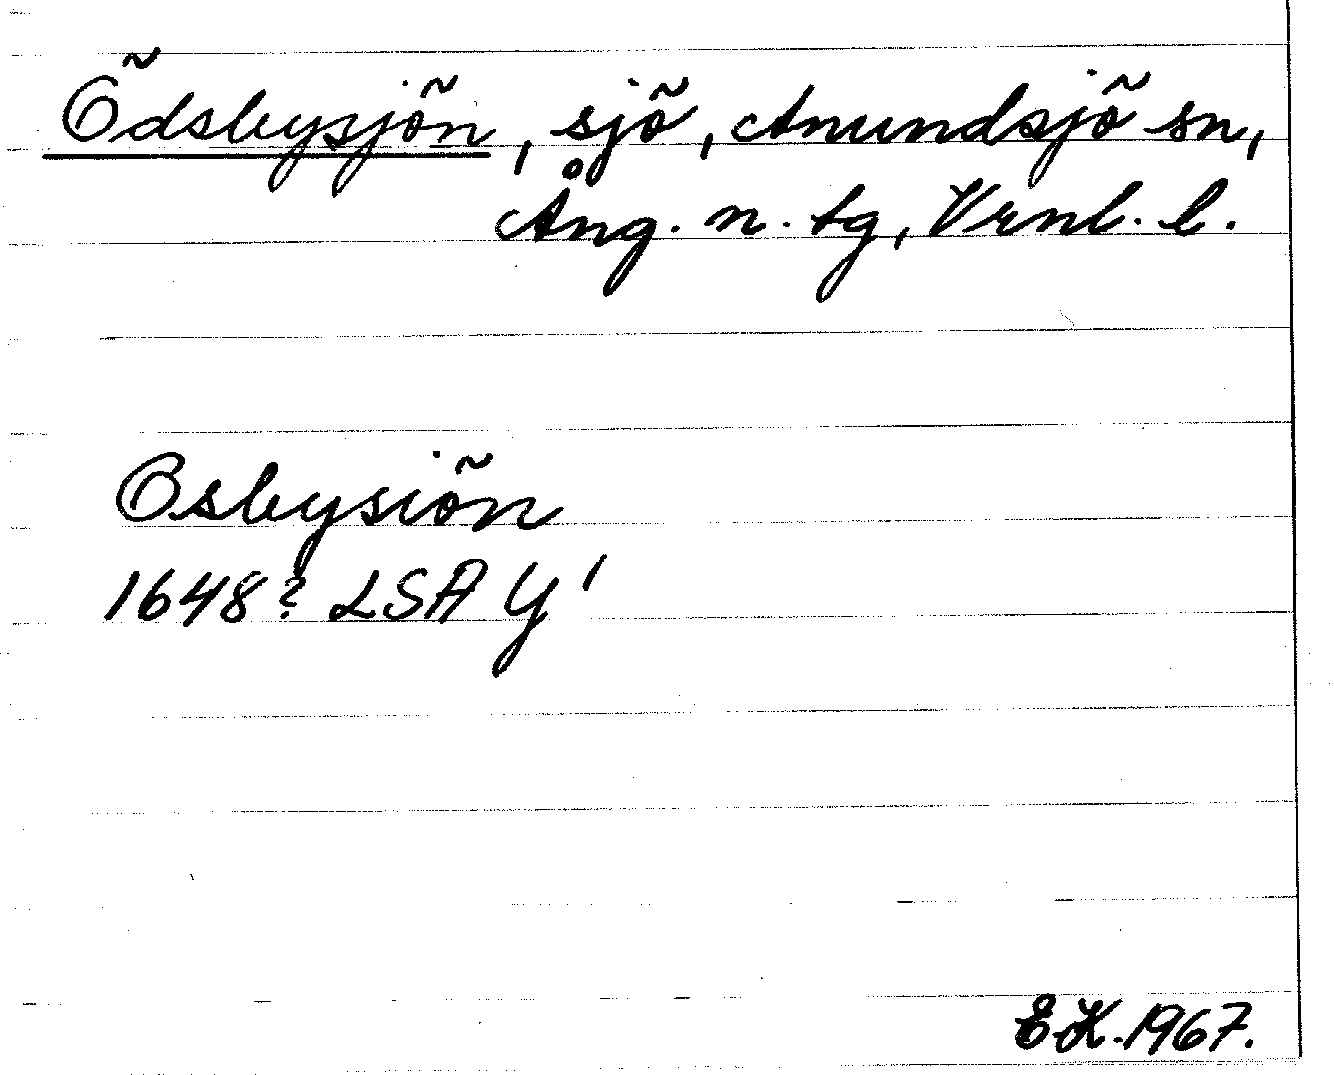 Ödsbysjön, sjö, Anundsjö sn,
Ång. n. tg, Vrnl. l.
Osbysiön
1648? LSA Y 1
E.K. 1967.